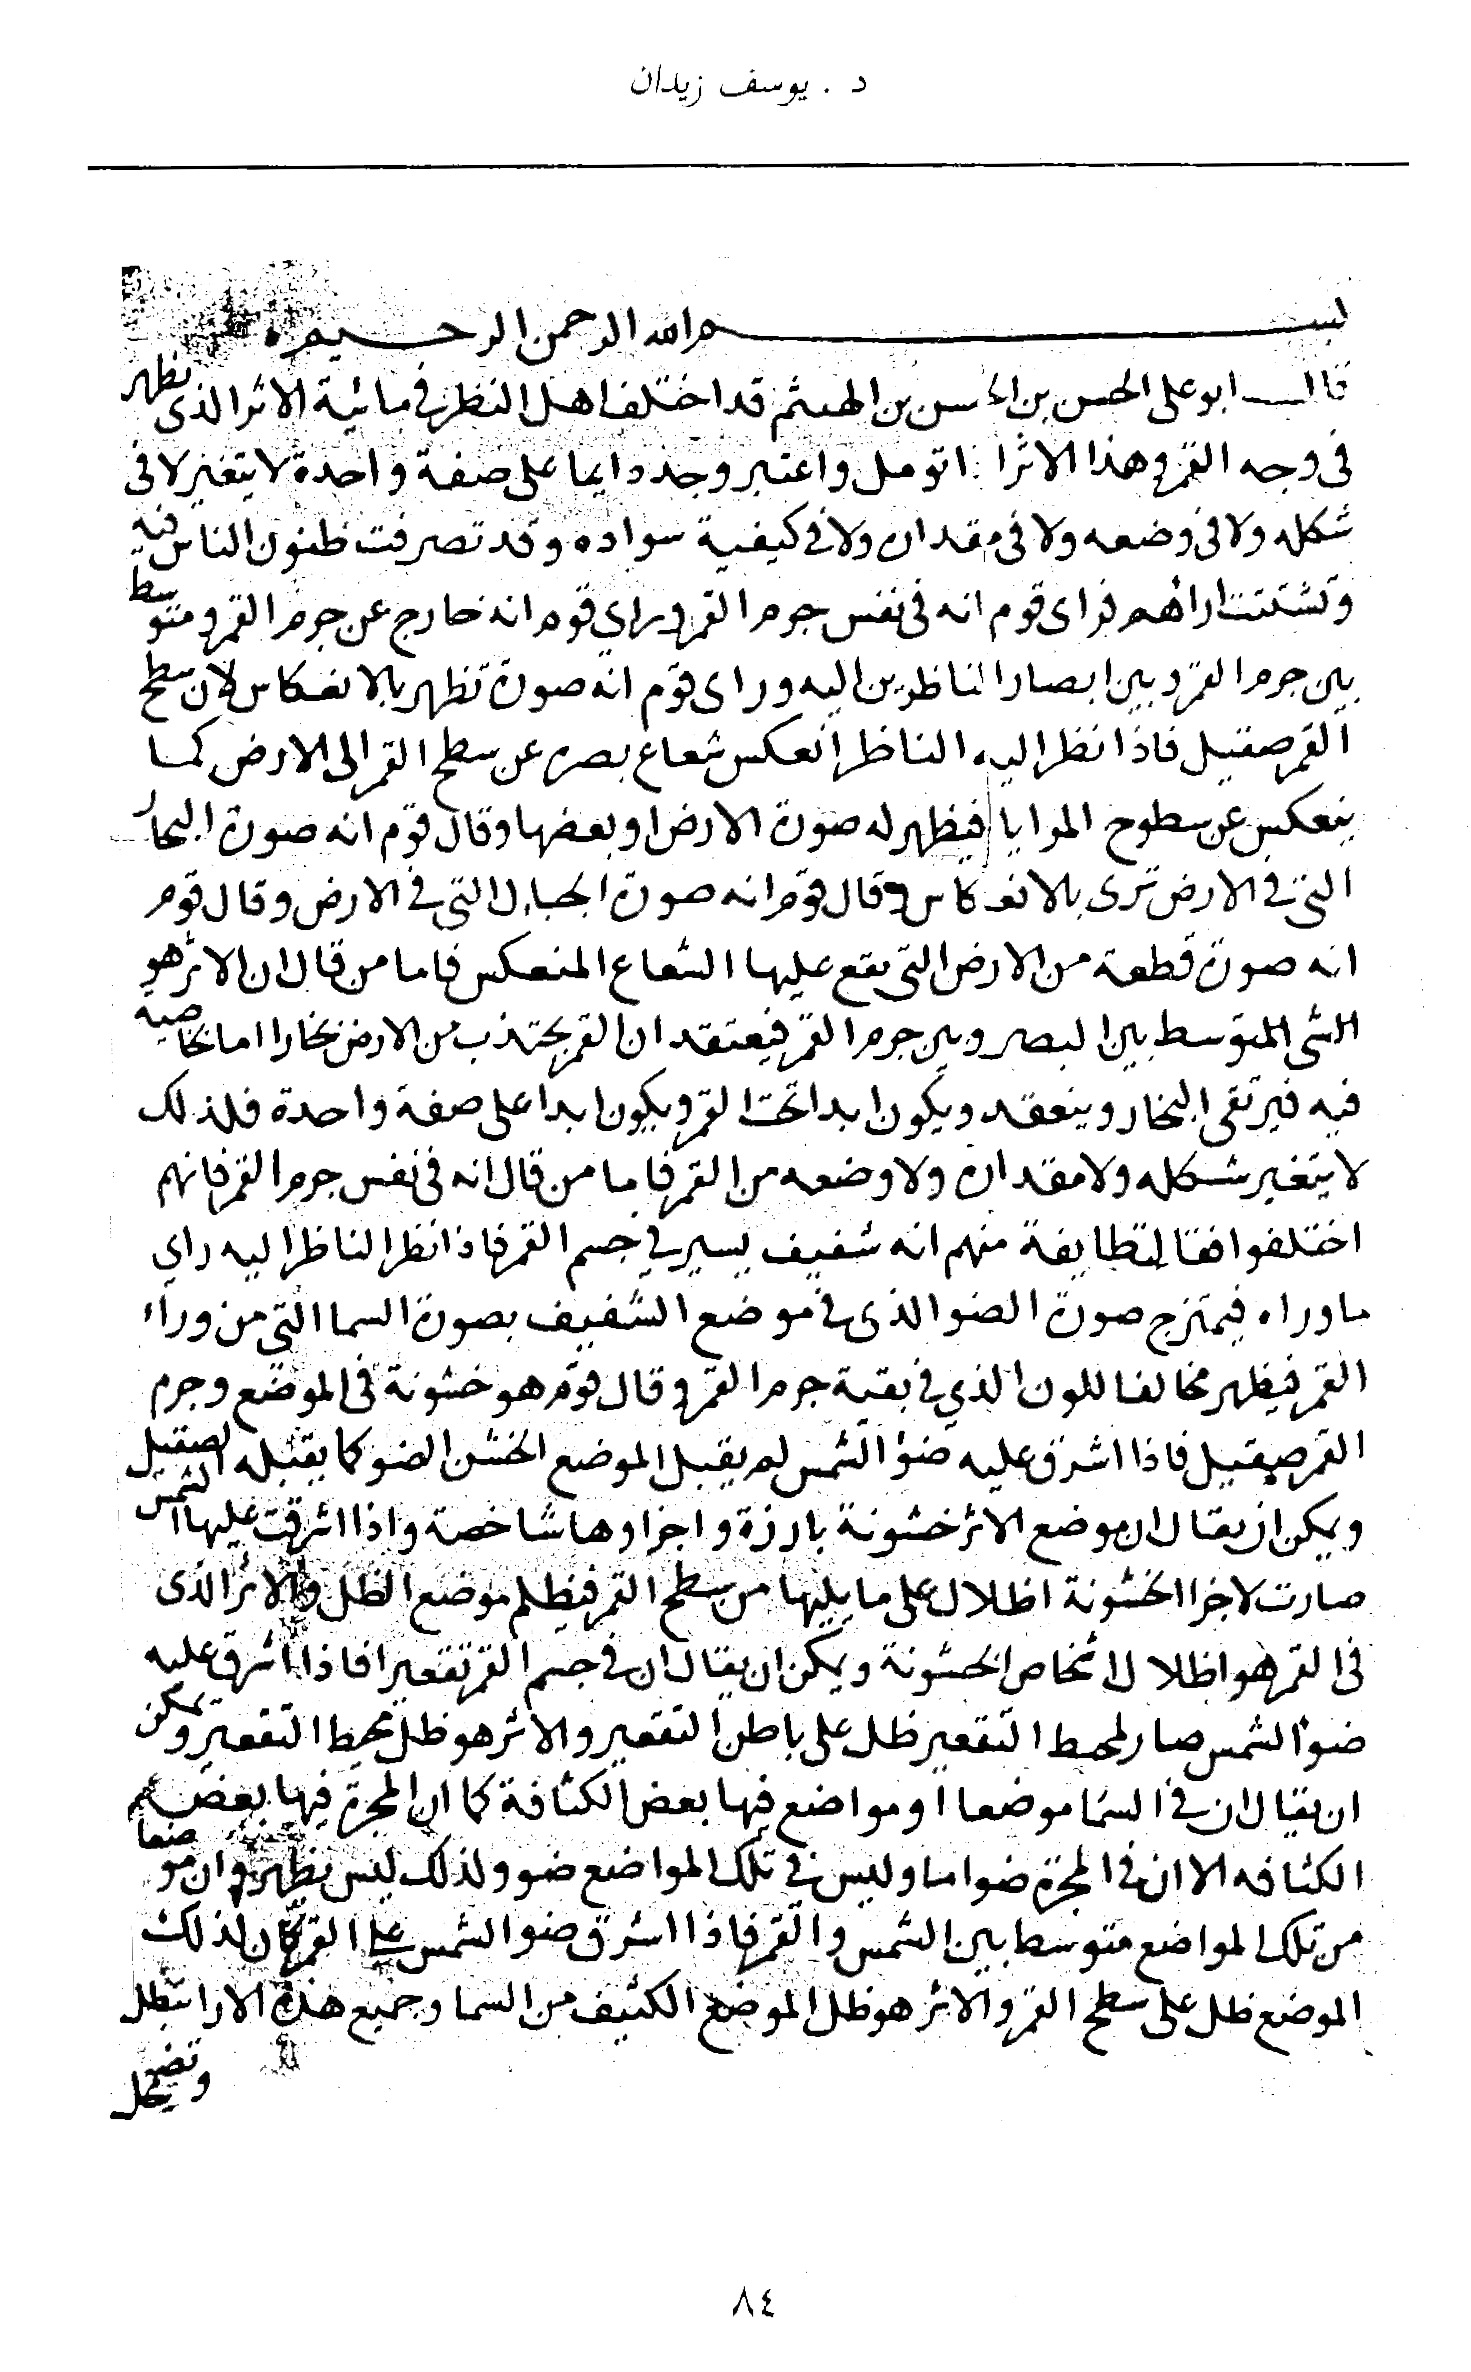 د . يوسف زيدان
بسم الله الرحمن الرحيم ه
قال ابو على الحسن بن الحسن بن الهيثم قد اختلف اهل النظر في مائية الاثر الذى يظهر
فى وجه القمر وهذا الاثر اذا تومل واعتبر وجد دايما على صفة واحدة لا يتغير لا فى
شكله ولا فى وضعه ولا فى مقداره ولا فى كيفية سواده وقد تصرفت ظنون الناس فيه
وتشتتت اراؤهم فراى قوم انه فى نفس جرم القمر وراي قوم انه خارج عن جرم القمر ومتوسط
بين جرم القمر وبين ابصار الناظرين اليه وراى قوم انه صورة تظهر بالانعكاس لان سطح
القمر صقيل فاذا نظر اليه الناظر انعكس شعاع بصره عن سطح القمر الى الارض كما
ينعكس عن سطوح المرايا فيظهر له صورة الارض او بعضها وقال قوم انه صورة البحار
التي في الارض ترى بالانعكاس وقال قوم انه صورة الجبال التي في الارض وقال قوم
انه صورة قطعة من الارض التي يقع عليها الشعاع المنعكس فاما من قال ان الاثر هو
الشى المتوسط بين البصر وبين جرم القمر فيعتقد ان القمر يجتذب من الارض بخارا اما بخاصية
فيه فيرتقى البخار وينعقد ويكون ابدا تحت القمر ويكون ابدا على صفة واحدة فلذلك
لا يتغير شكله ولا مقداره ولا وضعه من القمر فاما من قال انه فى نفس جرم القمر فانهم
اختلفوا فقالت طايفة منهم انه شفيف يسير في جسم القمر فاذا نظر الناظر اليه راي
ما وراه فيمتزج صورة الضو الذى في موضع الشفيف بصورة السما التي من وراء
القمر فيظهر مخالفا للون الذي في بقية جرم القمر وقال قوم هو خشونة فى الموضع وجرم
القمر صقيل فاذا اشرق عليه ضؤ الشمس لم يقبل الموضع الخشن الضو كما يقبله الصقيل
ويمكن ان يقال ان موضع الاثر خشونة بارزة واجزاوها شاخصة واذا اشرقت عليها الشمس
صارت لاجزا الخشونة اظلال على ما يليها من سطح القمر فيظلم موضع الظل والاثر الذى
فى القمر هو اظلال اشخاص الخشونة ويمكن ان يقال ان فى جسم القمر تقعيرا فاذا اشرق عليه
ضوٴ الشمس صار لمحيط التقعير ظل على باطن التقعير والاثر هو ظل محيط التقعير ويمكن
ان يقال ان في السما موضعا او مواضع فيها بعض الكثافة كما ان المجرة فيها بعض
الكثافه الا ان فى المجرة ضوا ما وليس في تلك المواضع ضو ولذلك ليس يظهر وان موضعا
من تلك المواضع متوسط بين الشمس والقمر فاذا اشرق ضو الشمس على القمر كان لذلك
الموضع ظل على سطح القمر والاثر هو ظل الموضع الكثيف من السما وجميع هذه الارا تبطل
وتضمحل
٨٤